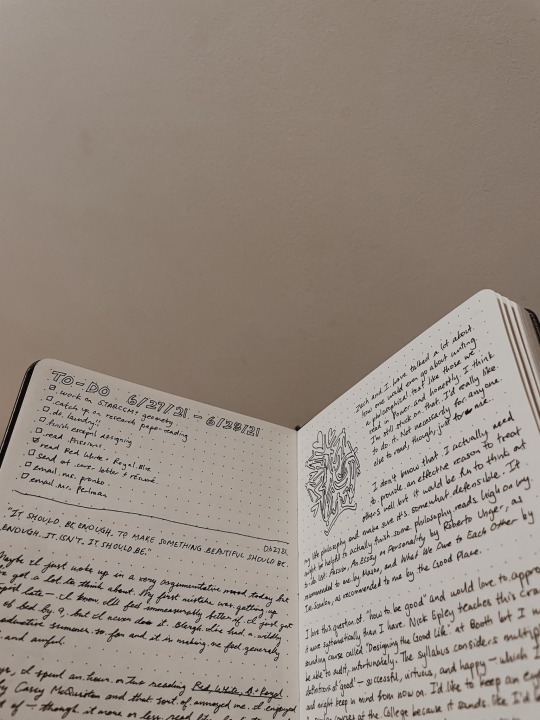 TO-DO 6/27/21 - 6/28/21
work on STARCCM+ geometry
catch up on research paper reading
do laundry!!
finish excerpt
read missions
read Red White + Royal Blue
send at. cover letter + résumé
email ms. pronko
email mr. Perlman
"IT SHOULD BE ENOUGH. TO MAKE SOMETHING BEAUTIFUL SHOULD BE
ENOUGH. IT ISN'T. IT SHOULD BE."
Maybe I just woke up in a very argumentative mood today but
I've got a lot to think about. My first mistake was getting up
late - I know I'll feel immeasurably better if I just get
of bed by 9, but I never do it. Sleigh. I've had a wildly
summer so far and it is making me feel generally
and awful.
I spent an hour or two reading Red, White, & Royal
by Casey McQuiston and that sort of annoyed me. I enjoyed
of - though it more or less read like
Zach and I have talked a lot about
how one would even go about writing
a philosophical text like those we
read in Power, and honestly, I think
I'm still stuck on that. I'd really like
to do it. Not necessarily for anyone
else to read, though, just for me.
I don't know that I actually need
to provide an effective reason to treat
others well but it would be fun to think out
my life philosophy and make sure it's somewhat defensible. It
might be helped to actually finish some philosophy reads high on my
to-do list: Passion: An Essay on Personality by Roberto Unger, as
recommended to me by Mason, and What We Owe to Each Other by
Tim Scanlon, as recommended to me by the Good Place.
I love this question of "how to be good" and would love to appro
it more systematically than I have. Nick Epley teaches this cra
sounding course called "Designing the Good Life" at Booth but I
be able to audit, unfortunately. The syllabus considers multip
definitions of 'good' - successful, virtuous, and happy - which I
and might keep in mind from now on. I'd like to keep an ey
courses at the College because it sounds like I'd